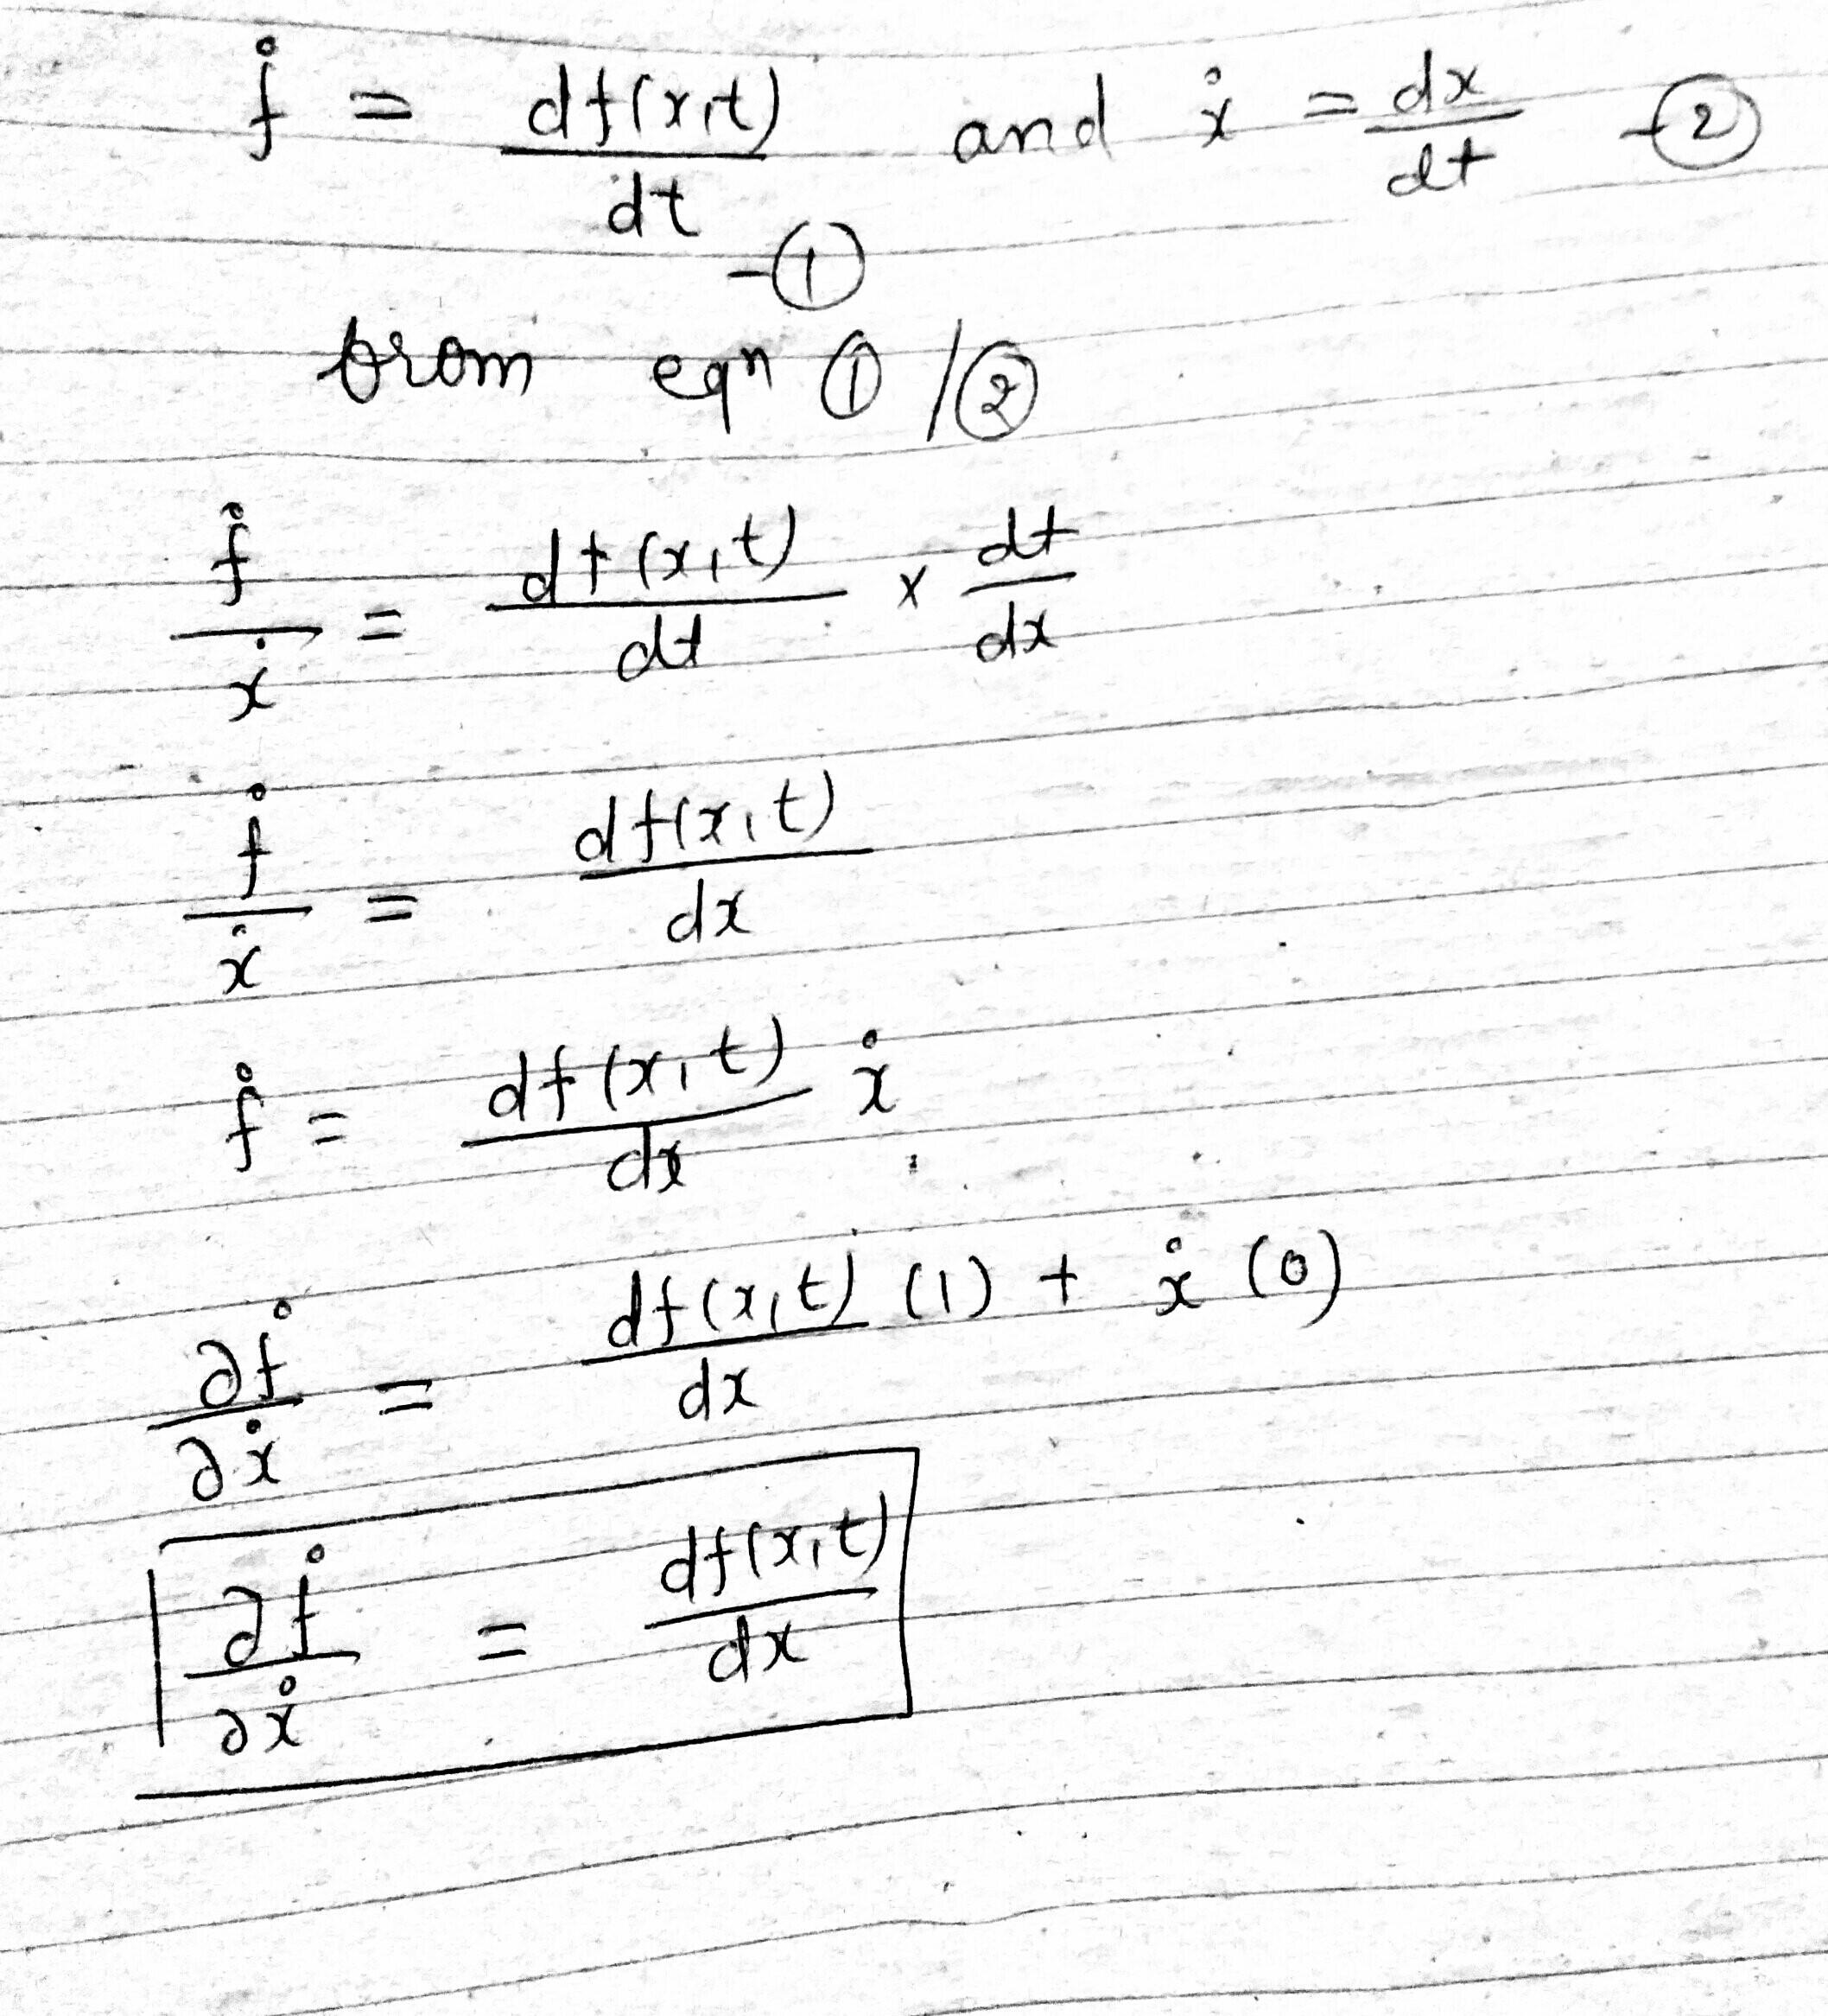 ḟ = df(x,t)/dt —① and ẋ = dx/dt —②
from eqⁿ ① / ②
ḟ/ẋ = df(x,t)/dt × dt/dx
ḟ/ẋ = df(x,t)/dx
ḟ = df(x,t)/dx ẋ
∂ḟ/∂ẋ = df(x,t)/dx (1) + ẋ (0)
∂ḟ/∂ẋ = df(x,t)/dx